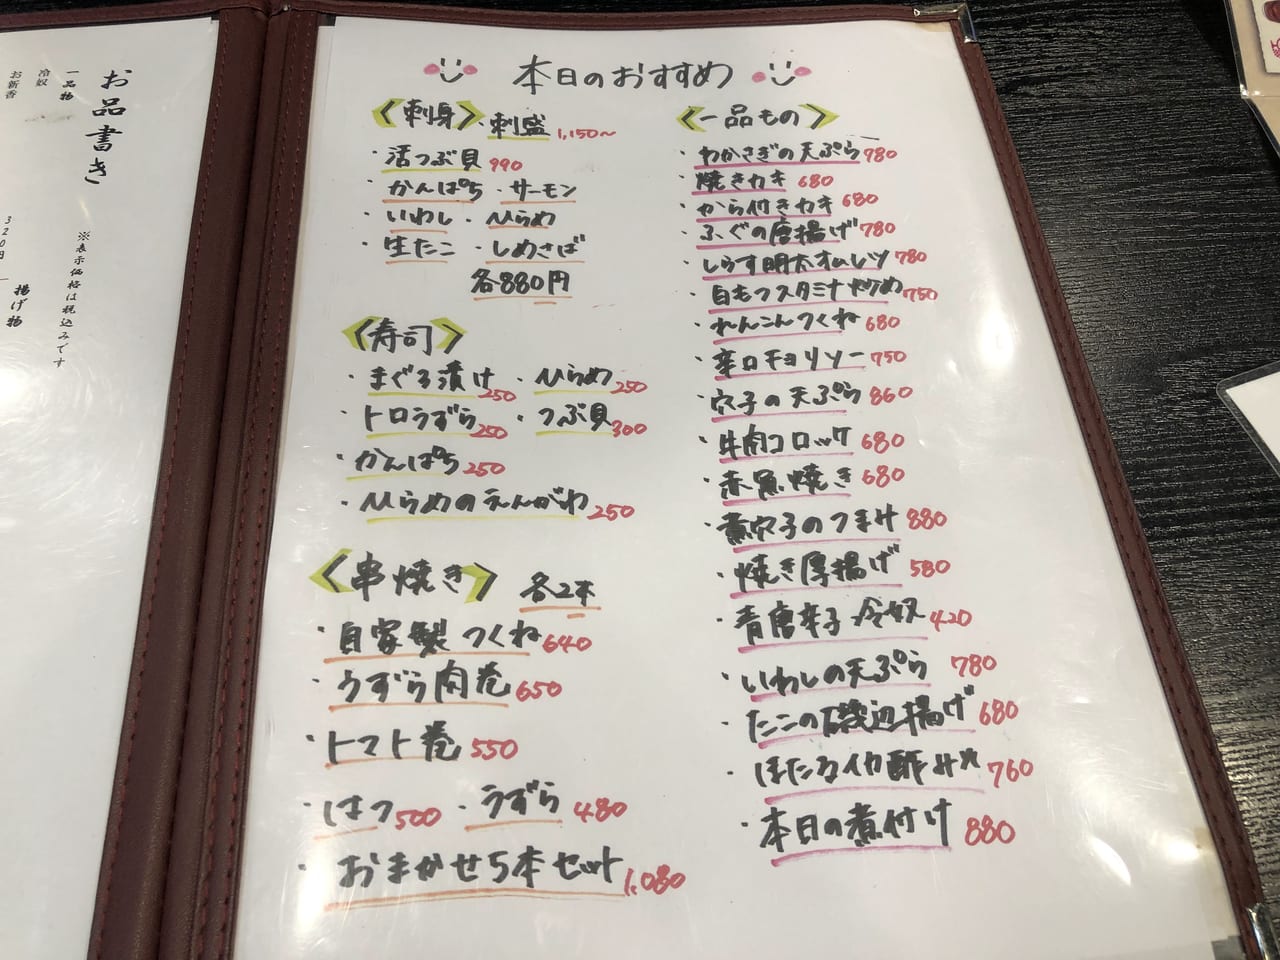 お品書き
※表示価格は税込みです
一品物
冷奴
お新香
320円
揚げ物
本日のおすすめ
〈刺身〉・刺盛 1,150〜
・活つぶ貝 990
・かんぱち ・サーモン
・いわし ・ひらめ
・生たこ ・しめさば
各880円
〈寿司〉
・まぐろ漬け 250 ・ひらめ 250
・トロうずら 250 ・つぶ貝 300
・かんぱち 250
・ひらめのえんがわ 250
〈串焼き〉 各2本
・自家製つくね 640
・うずら肉巻 650
・トマト巻 550
・はつ 500 ・うずら 480
・おまかせ5本セット 1,080
〈一品もの〉
・わかさぎの天ぷら 780
・焼きカキ 680
・から付きカキ 680
・ふぐの唐揚げ 780
・しらす明太オムレツ 780
・白もつスタミナ炒め 750
・れんこんつくね 680
・辛口チョリソー 750
・穴子の天ぷら 860
・牛肉コロッケ 680
・赤魚焼き 680
・煮穴子のつまみ 880
・焼き厚揚げ 580
・青唐辛子冷奴 420
・いわしの天ぷら 780
・たこの磯辺揚げ 680
・ほたるイカ酢みそ 760
・本日の煮付け 880